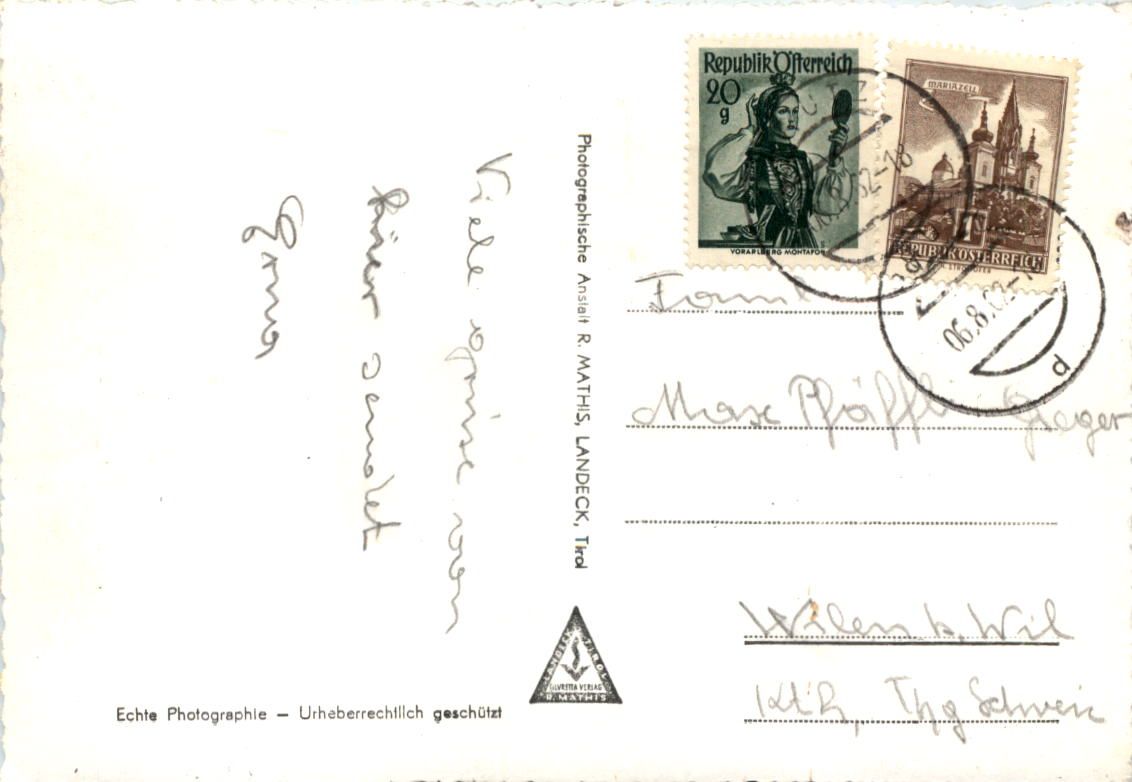 Viele grüsse von
hier sendet
Erna
Photographische Anstalt R. MATHIS, LANDECK, Tirol
LANDECK TIROL
SILVRETTA VERLAG
R. MATHIS
Echte Photographie – Urheberrechtlich geschützt
Republik Österreich
20
g
VORARLBERG MONTAFON
MARIAZELL
1
REPUBLIK ÖSTERREICH
62-18
06.8.62-1
d
Famil
Max Pfäffli Gieger
Wilen b. Wil
Kt. Thg Schweiz